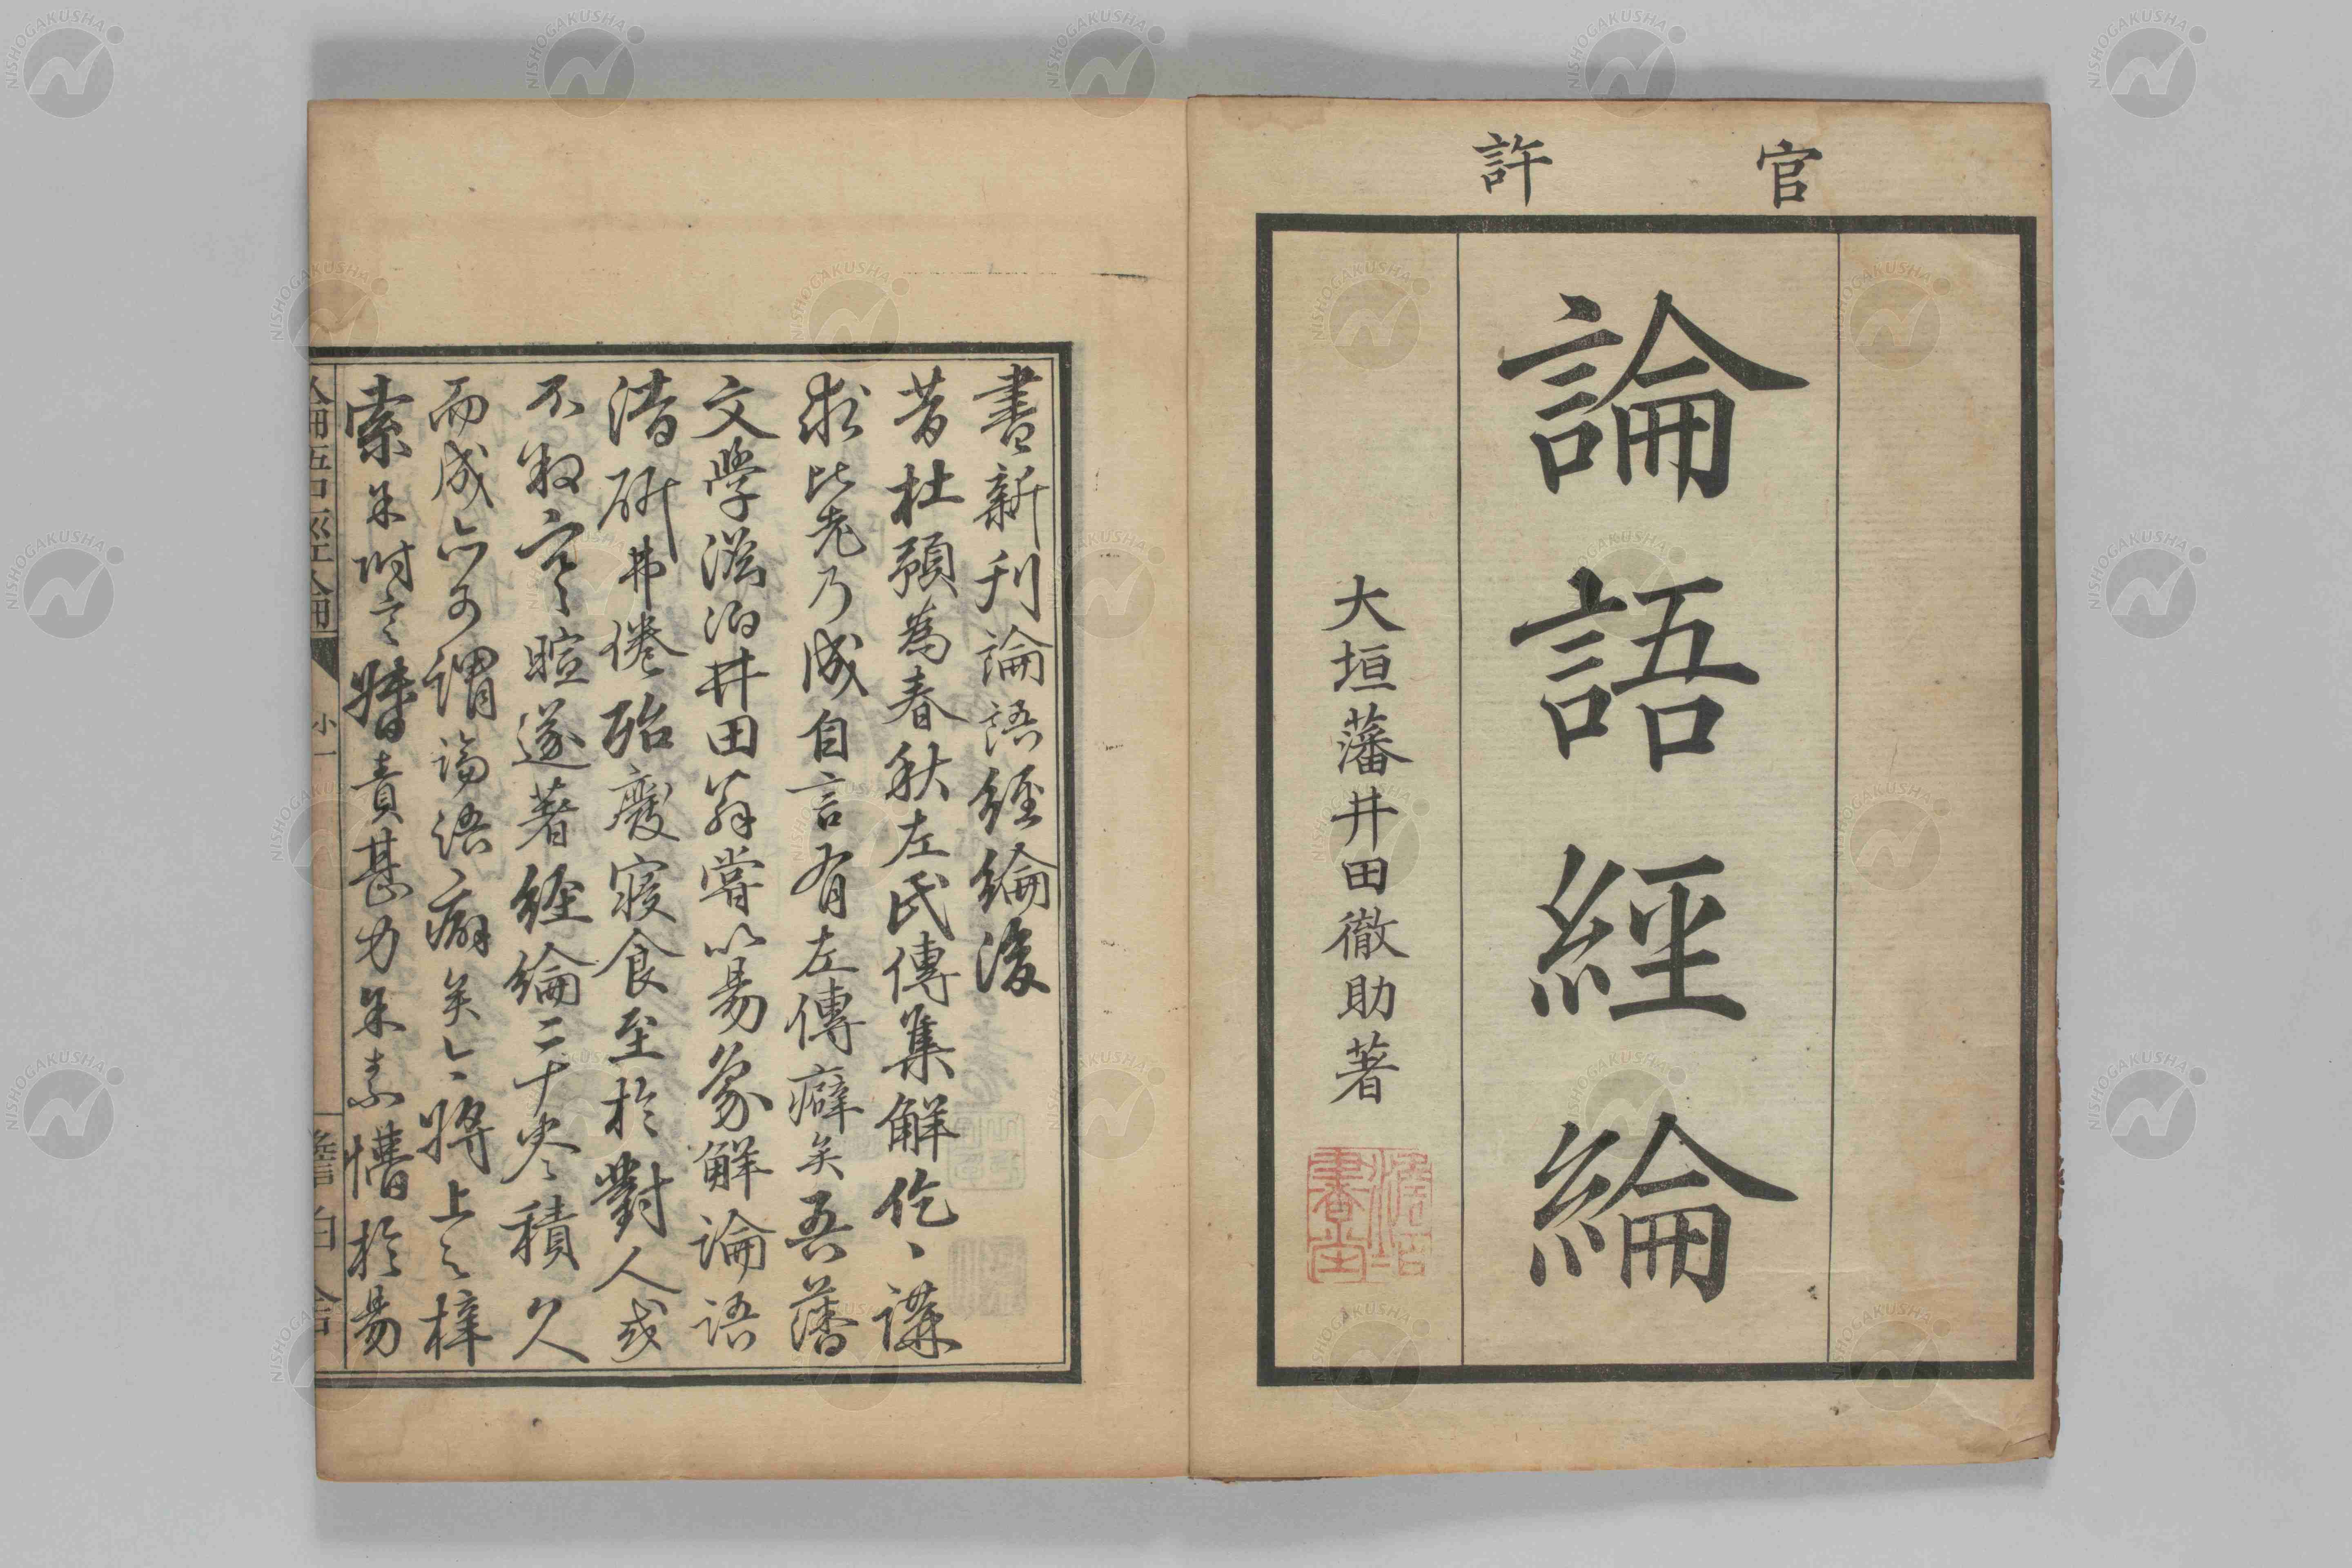 官許
論語經綸
大垣藩井田徹助著
書新刊論語經綸後
昔杜預為春秋左氏傳集解伀〻謀
求比老乃成自言有左傳癖矣吾藩
文學澹泊井田翁嘗以易象解論語
潛研弗倦殆廢寢食至於對人或
不叙寒暄遂著經綸二十卷積久
而成亦可謂論語癖矣今將上之梓
索余附言贖責甚力余素懵於易
論語經綸
小一
澹泊舍
NISHOGAKUSHA